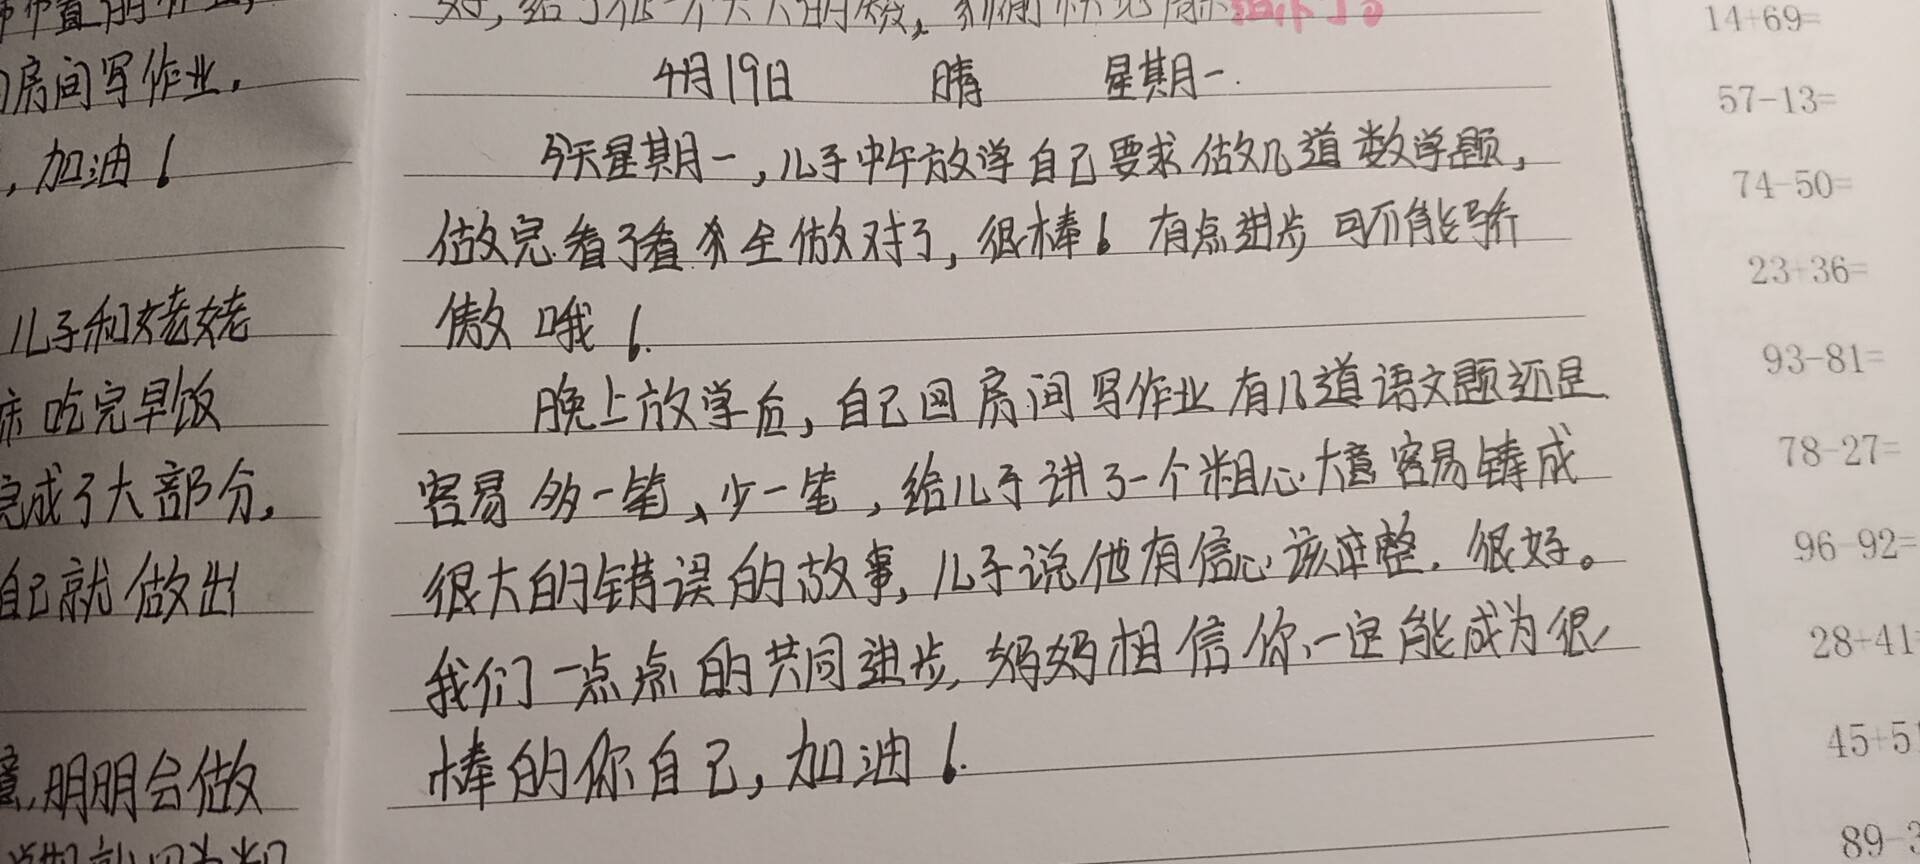 房间写作业.
，加油！
儿子和姥姥
床吃完早饭
完成了大部分，
自己就做出
意,明明会做
4月19日 晴 星期一.
今天星期一，儿子中午放学自己要求做几道数学题，
做完看了看 全做对了，很棒！有点进步可不能骄
傲哦！
晚上放学后，自己回房间写作业有几道语文题还是
容易多一笔、少一笔，给儿子讲了一个粗心大意容易铸成
很大的错误的故事，儿子说他有信心 整．很好。
我们一点点的共同进步,妈妈相信你一定能成为很
棒的你自己，加油！
14+69=
57-13=
74-50=
23+36=
93-81=
78-27=
96-92=
28+41
45+51
89-3